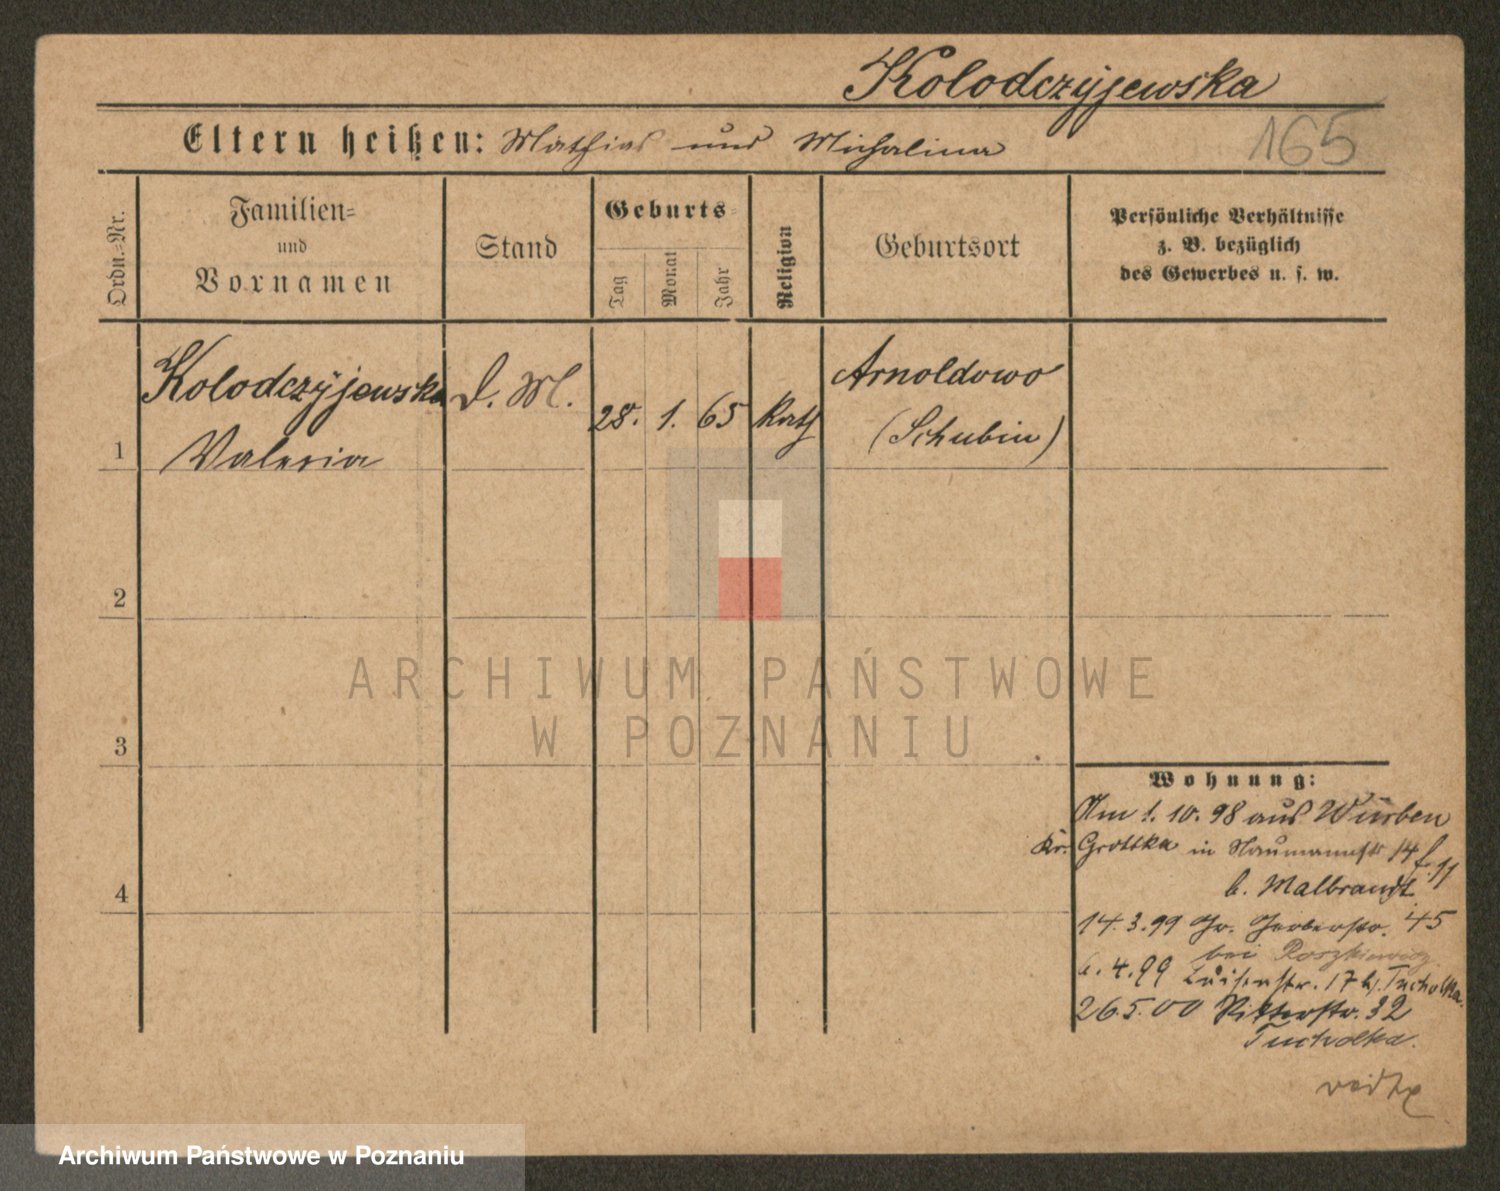 Kolodczyjewska
Eltern heißen: Mathias und Michalina
165
Ordn.-Nr.
Familien=
und
Vornamen
Stand
Geburts=
Tag
Monat
Jahr
Religion
Geburtsort
Persönliche Verhältnisse
z. B. bezüglich
des Gewerbes u. s. w.
1
Kolodczyjewska
Valeria
D. M.
28. 1. 65
Kath
Arnoldowo
(Schubin)
2
3
4
ARCHIWUM PAŃSTWOWE
W POZNANIU
Wohnung:
Am 1. 10. 98 aus Würben
Kr. Grottka in Naumannstr 14 f. 11
b. Malbrandt
14. 3. 99 Gr. Gerberstr. 45
bei Roszkiewicz
6. 4. 99 Luisenstr. 17 b/. Tucholka.
26.5.00 Ritterstr. 32
Tucholka.
Archiwum Państwowe w Poznaniu